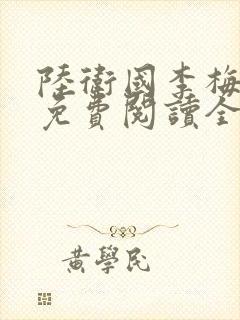 陸衛國李梅
免費閱讀全
黃學民